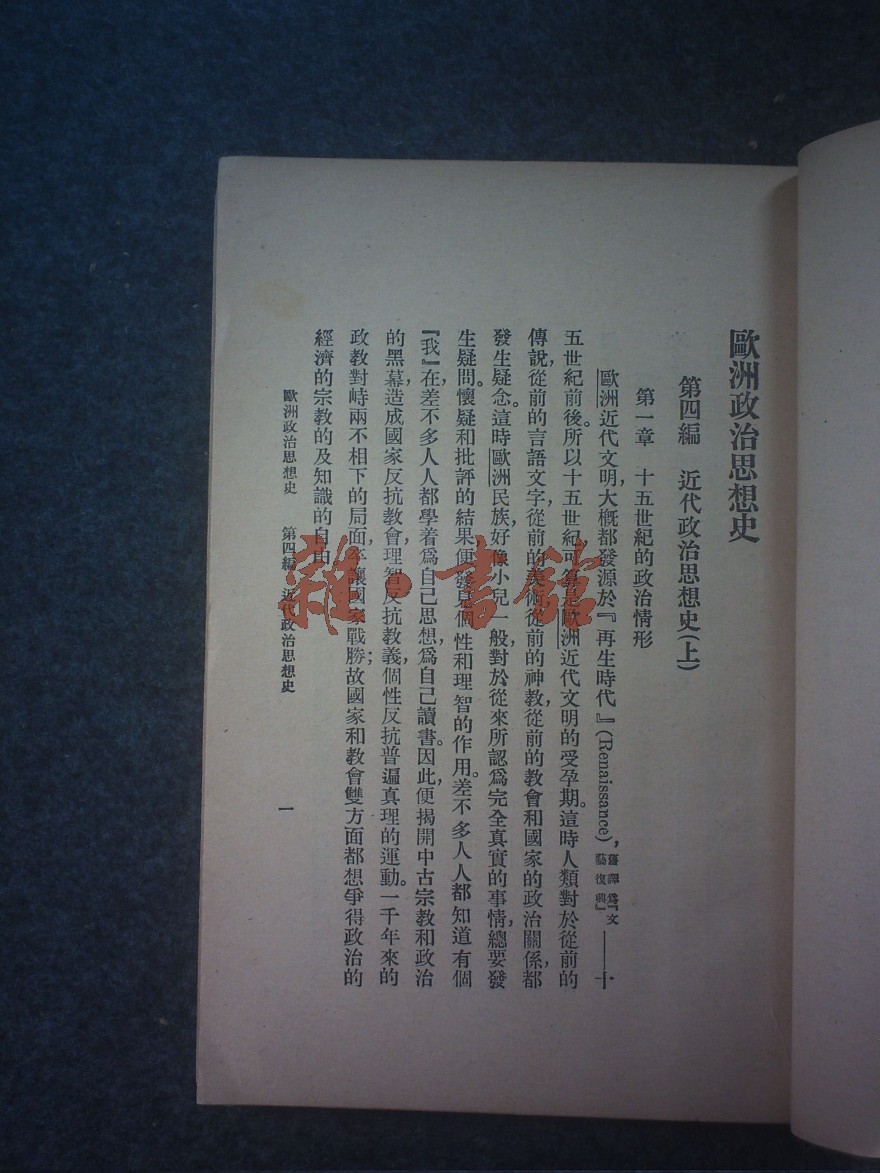 歐洲政治思想史
第四編　近代政治思想史(上)
第一章　十五世紀的政治情形
歐洲近代文明,大概都發源於『再生時代』(Renaissance),舊譯爲『文藝復興』——十
五世紀前後。所以十五世紀,可算是歐洲近代文明的受孕期。這時人類對於從前的
傳說,從前的言語文字,從前的美術,從前的神教,從前的教會和國家的政治關係,都
發生疑念。這時歐洲民族,好像小兒一般,對於從來所認爲完全真實的事情,總要發
生疑問。懷疑和批評的結果,便發見個性和理智的作用。差不多人人都知道有個
『我』在,差不多人人都學着爲自己思想,爲自己讀書。因此,便揭開中古宗教和政治
的黑幕,造成國家反抗教會,理智反抗教義,個性反抗普遍真理的運動。一千年來的
政教對峙兩不相下的局面,卒讓國家戰勝;故國家和教會雙方面都想爭得政治的
經濟的宗教的及知識的自由
歐洲政治思想史　第四編　近代政治思想史　一
雜·書館